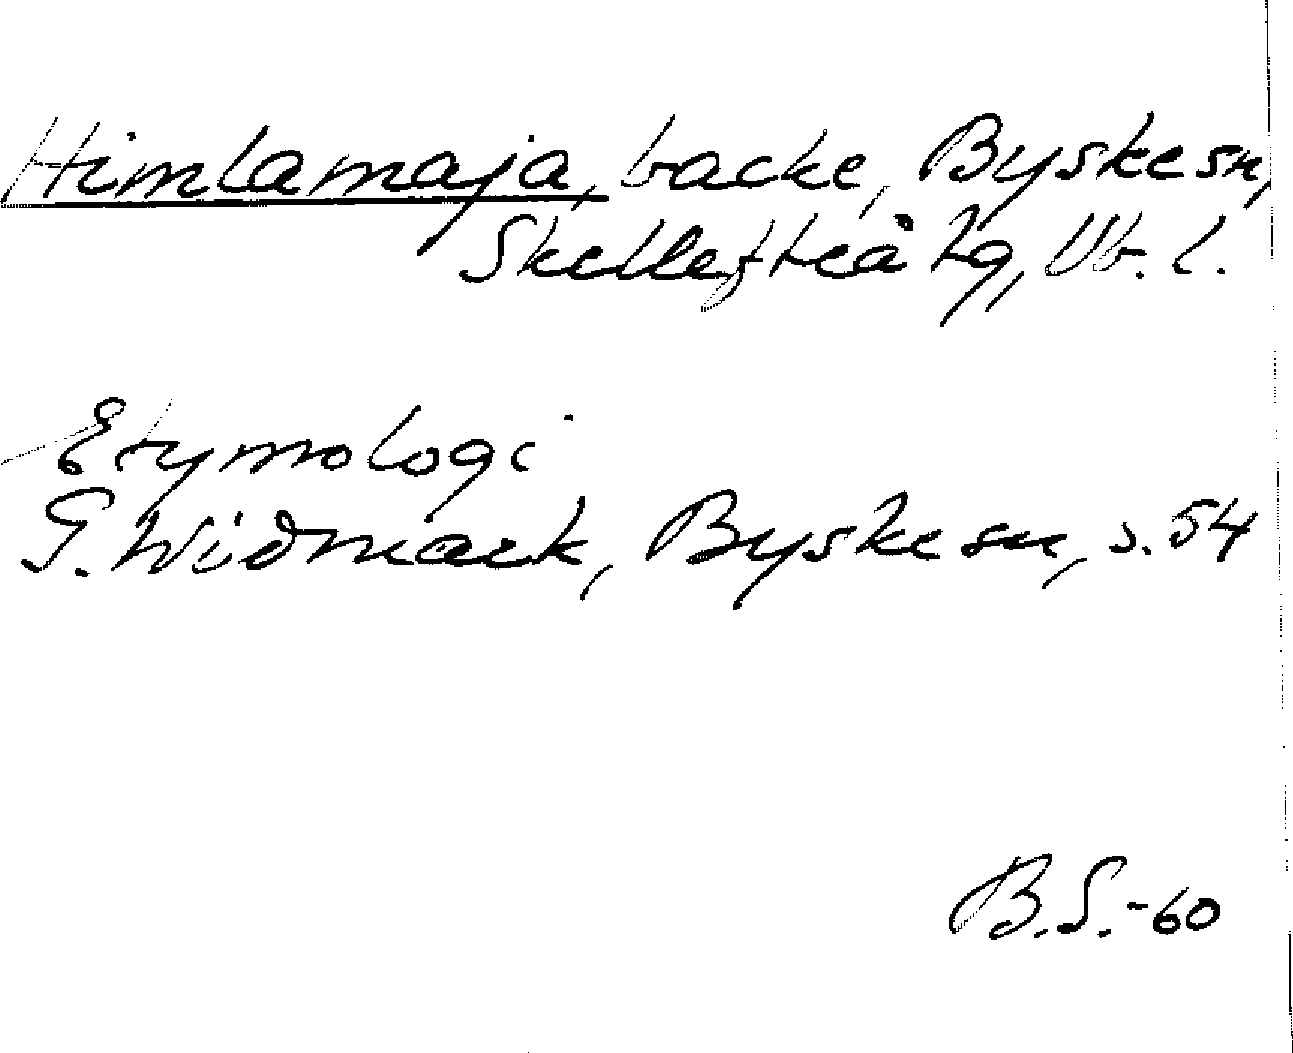 Himlamaja, backe, Byske sn,
Skellefteå tg, Vb. l.
Etymologi
G. Widmark, Byske sn, s. 54
B.S.-60